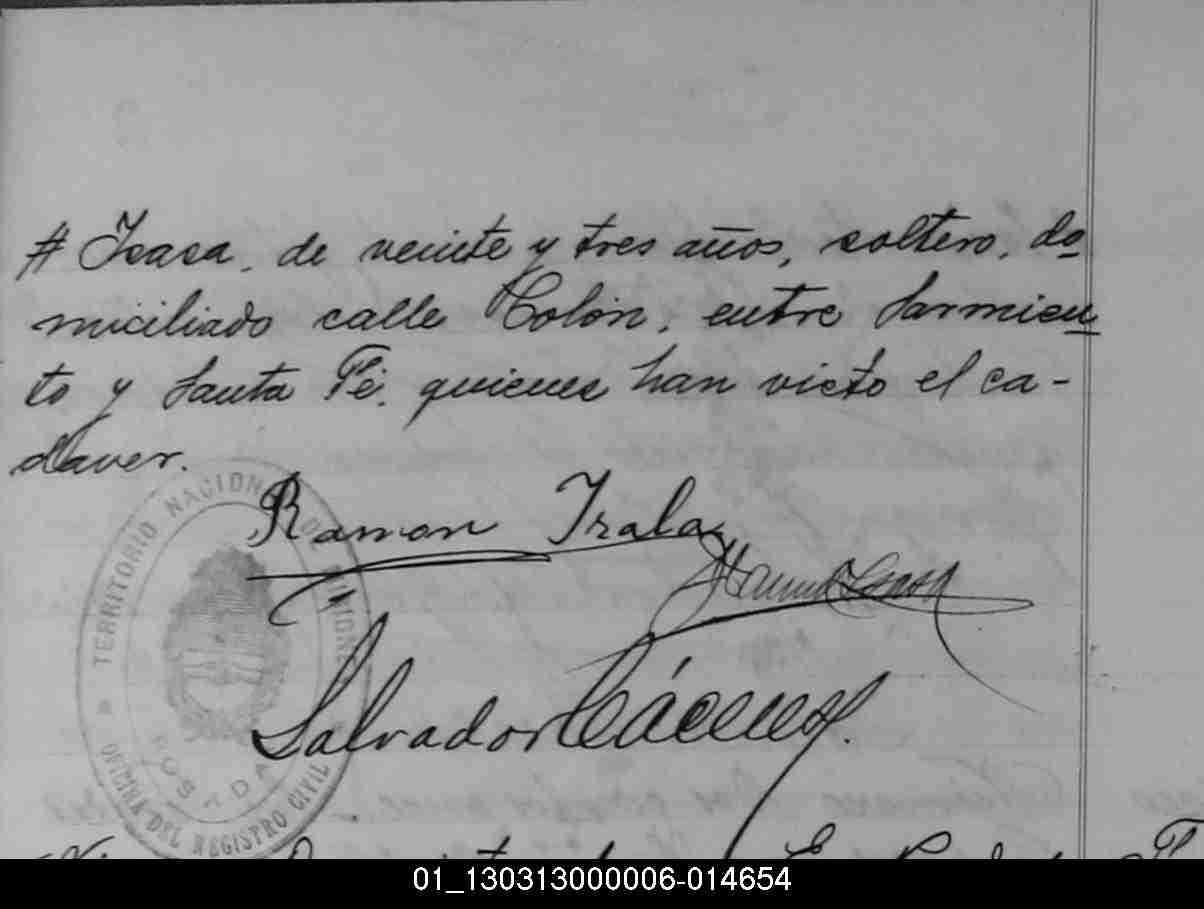 # Isasa, de veinte y tres años, soltero, do
miciliado calle Colón, entre Sarmien
to y Santa Fé, quienes han visto el ca-
daver.
Ramon Irala
Salvador
TERRITORIO NACIONAL DE MISIONES
POSADAS
OFICINA DEL REGISTRO CIVIL
01_130313000006-014654